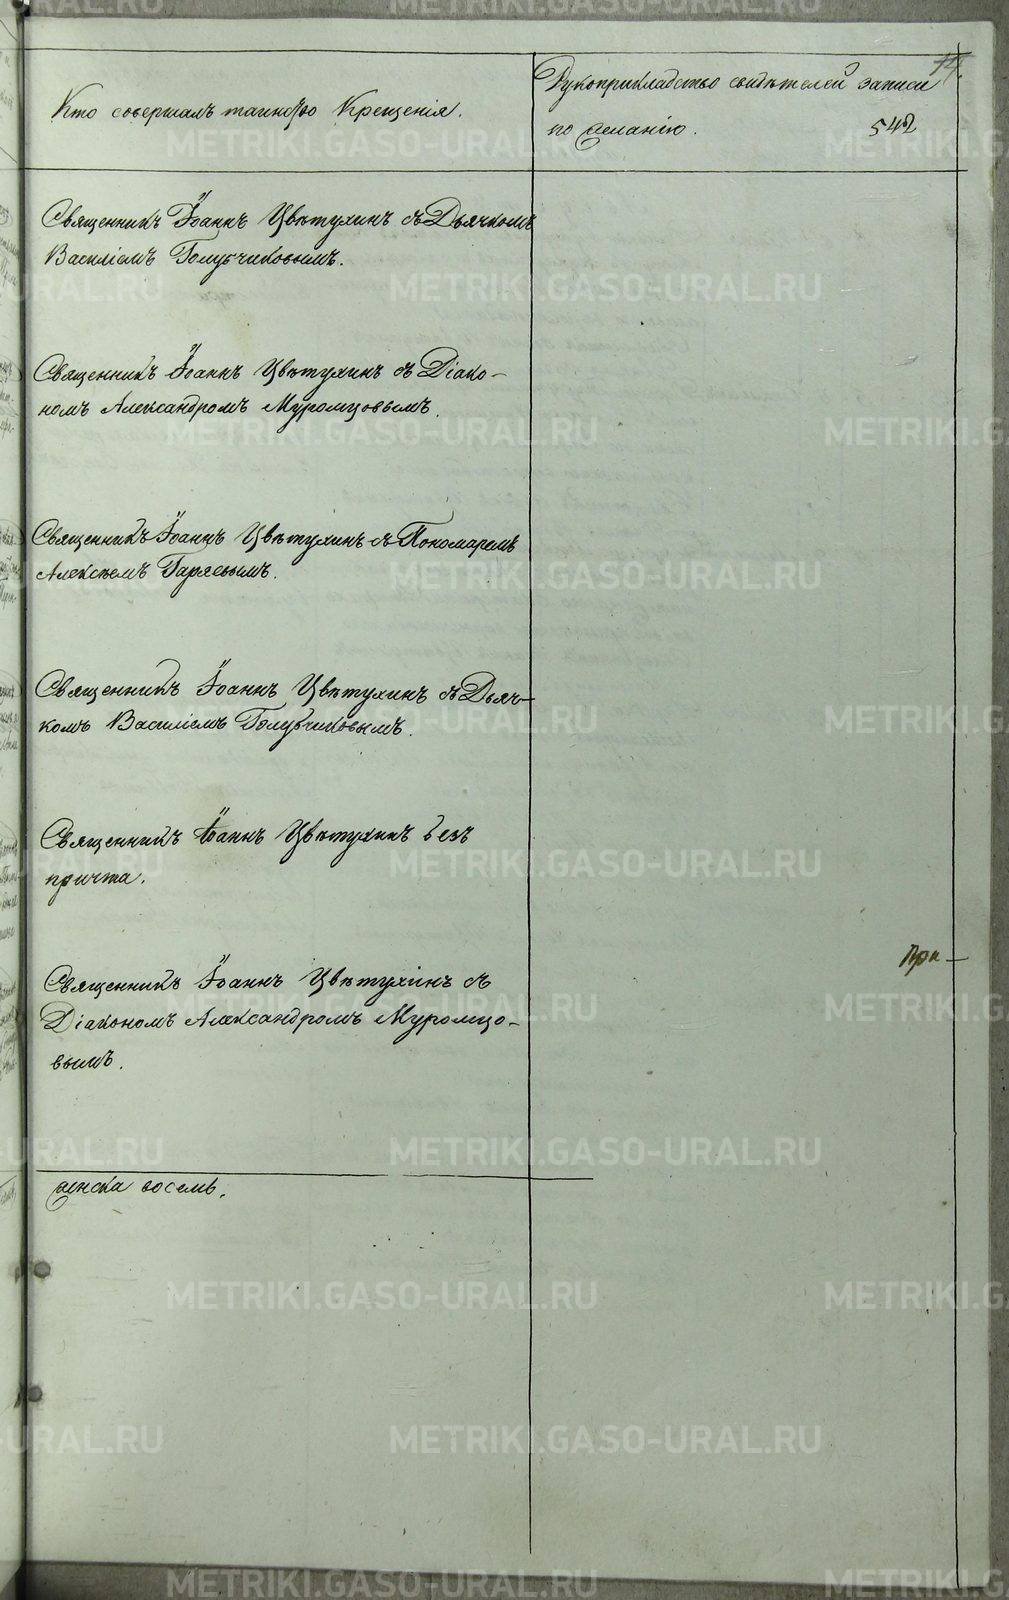 Кто совершалъ таинство Крещенія.
Рукоприкладство свидѣтелей записи
по желанію.
542
Священникъ Іоаннъ Цвѣтухинъ съ Дьячкомъ
Василіемъ Голубчиковымъ.
Священникъ Іоаннъ Цвѣтухинъ съ Діако-
номъ Александромъ Муромцовымъ.
Священникъ Іоаннъ Цвѣтухинъ съ Пономаремъ
Алексѣемъ Гаряевымъ.
Священникъ Іоаннъ Цвѣтухинъ съ Дьяч-
комъ Василіемъ Голубчиковымъ.
Священникъ Іоаннъ Цвѣтухинъ безъ
причта.
Священникъ Іоаннъ Цвѣтухинъ съ
Діакономъ Александромъ Муромцо-
вымъ.
При-
женска восемь.
METRIKI.GASO-URAL.RU